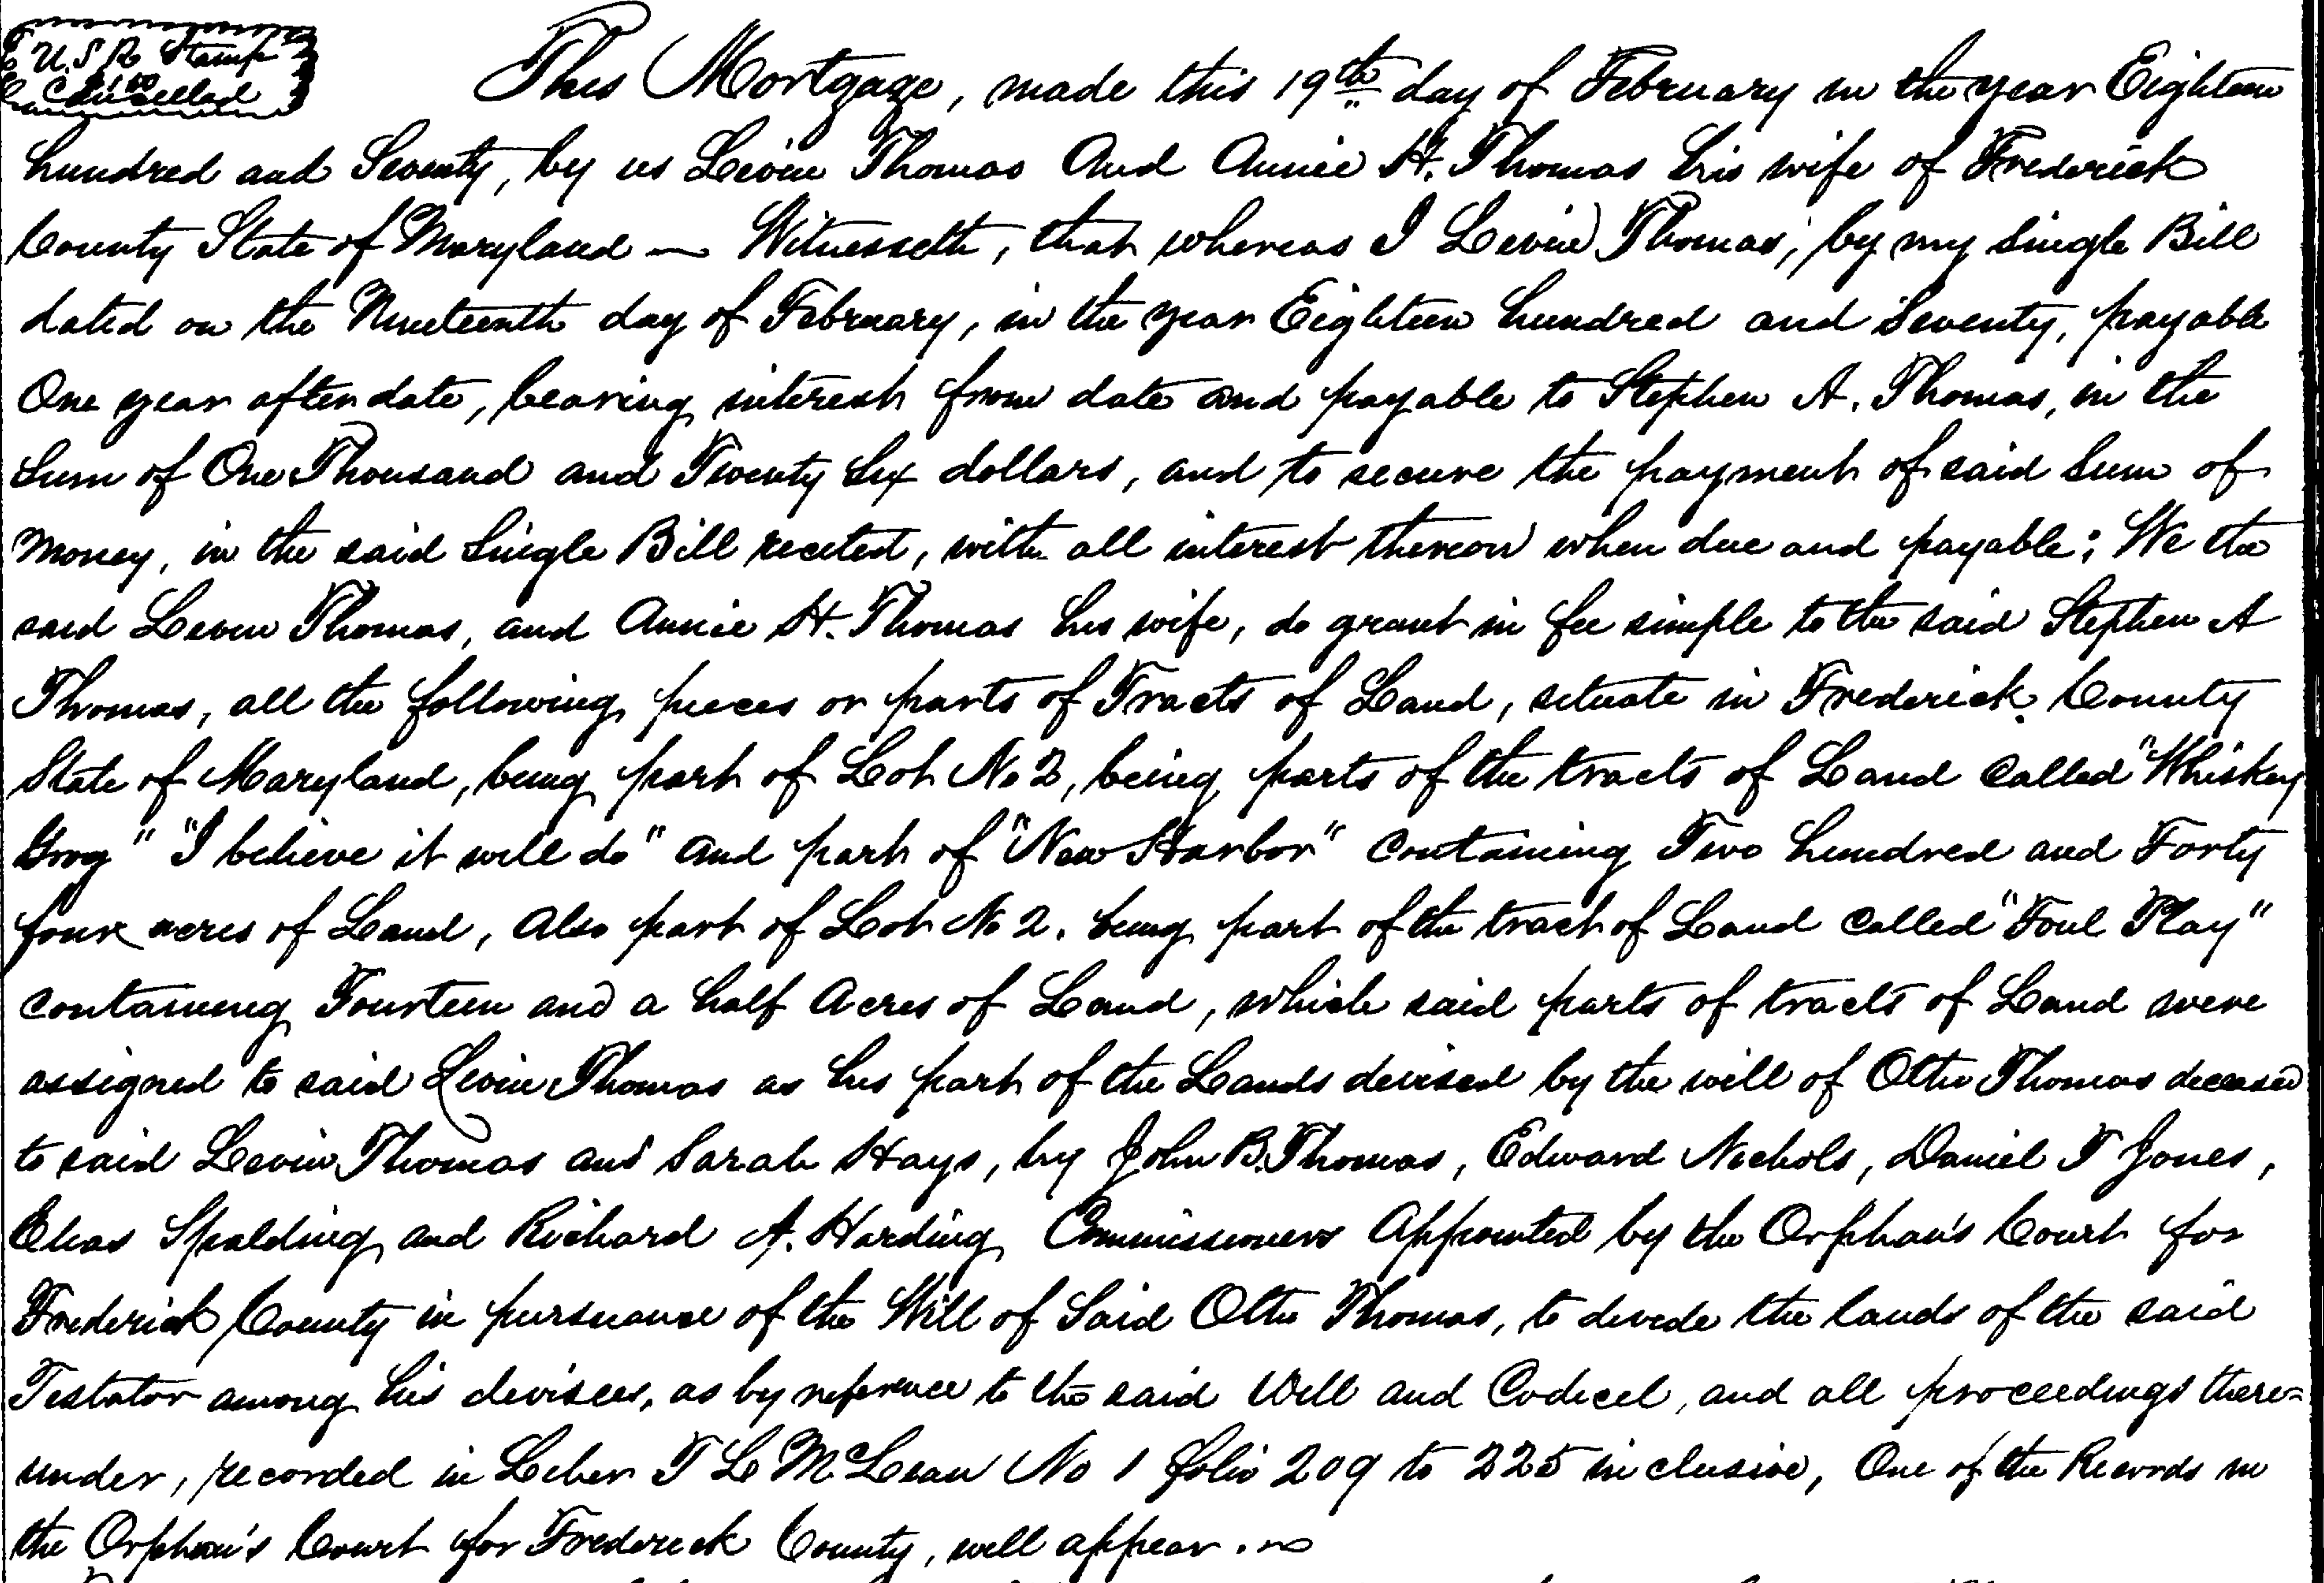 U.S.R Stamp
$1.00
Cancelled
This Mortgage, made this 19th day of February in the year Eighteen
hundred and Seventy, by us Levin Thomas And Annie H. Thomas his wife of Frederick
County State of Maryland — Witnesseth, that whereas I Levin Thomas, by my Single Bill
dated on the Nineteenth day of February, in the year Eighteen hundred and Seventy, payable
One year after date, bearing interest from date and payable to Stephen A. Thomas, in the
Sum of One Thousand and Twenty Six dollars, and to secure the payment of said Sum of
Money, in the said Single Bill recited, with all interest thereon when due and payable; We the
said Levin Thomas, and Annie H. Thomas his wife, do grant in fee simple to the said Stephen A
Thomas, all the following pieces or parts of Tracts of Land, situate in Frederick County
State of Maryland, being part of Lot No 2, being parts of the tracts of Land Called "Whiskey
Grog" "I believe it will do" and part of "New Harbor" Containing Two hundred and Forty
four acres of Land, Also part of Lot No 2. being part of the tract of Land Called "Foul Play"
Containing Fourteen and a half Acres of Land, which said parts of tracts of Land were
assigned to said Levin Thomas as his part of the Lands devised by the will of Otho Thomas deceased
to said Levin Thomas and Sarah Hays, by John B. Thomas, Edward Nichols, Daniel T Jones,
Elias Spalding and Richard A. Harding Commissioners Appointed by the Orphan's Court for
Frederick County in pursuance of the Will of Said Otho Thomas, to devide the lands of the said
Testator among his devisees, as by reference to the said Will and Codicel, and all proceedings there=
under, recorded in Leber T L McLean No 1 folio 209 to 225 inclusive, One of the Records in
the Orphan's Court for Frederick County, will appear.